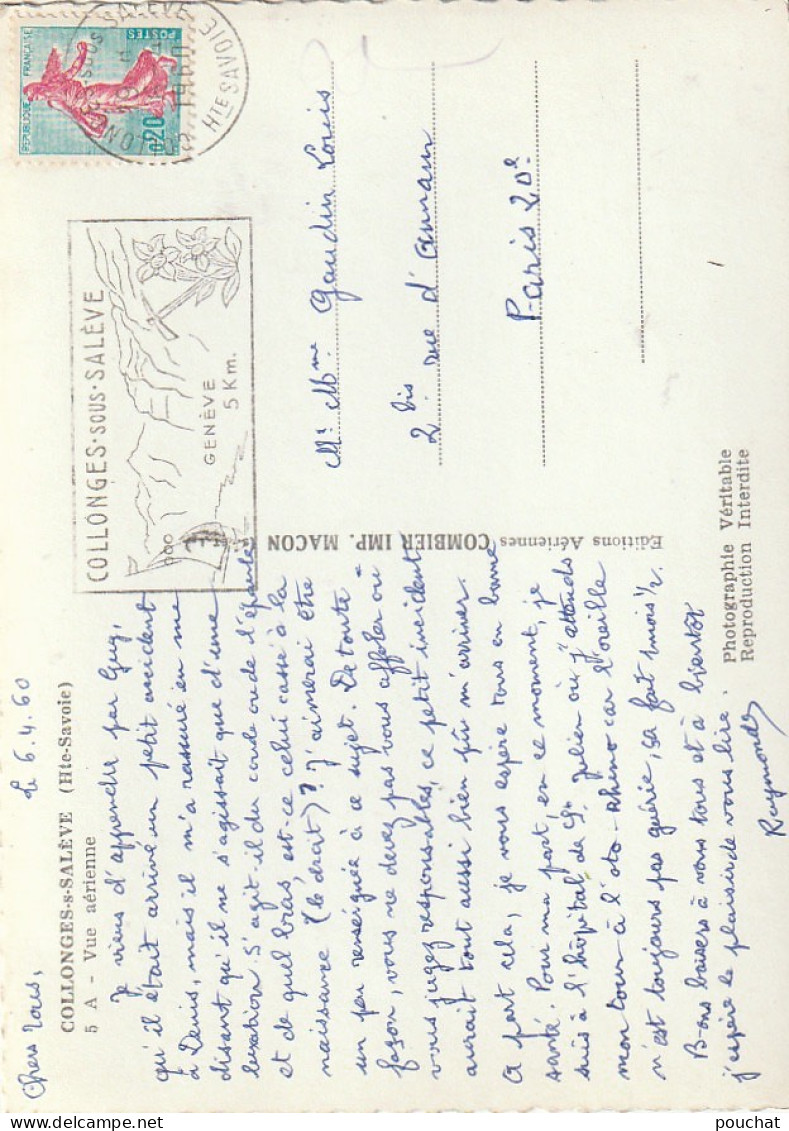 le 6.4.60
Chers tous,
COLLONGES-s-SALÈVE (Hte-Savoie)
5 A - Vue aérienne
Je viens d'apprendre par Guy,
qu'il était arrivé un petit accident
à Denis, mais il m'a rassuré en me
disant qu'il ne s'agissait que d'une
luxation. S'agit-il du coude ou de l'épaule
et de quel bras, est-ce celui cassé à la
naissance (le droit)? J'aimerai être
un peu renseignée à ce sujet. De toute
façon, vous ne devez pas vous affoler ou
vous jugez responsables, ce petit incident
aurait tout aussi bien pu m'arriver.
A part cela, je vous espère tous en bonne
santé. Pour ma part, en ce moment, je
suis à l'hôpital de St Julien où j'attends
mon tour à l'oto-rhino car l'oreille
n'est toujours pas guérie, ça fait 1 mois 1/2.
Bons baisers à vous tous et à bientôt
j'espère le plaisir de vous lire.
Raymonde
Editions Aériennes COMBIER IMP. MACON
Photographie Véritable
Reproduction Interdite
COLLONGES-SOUS-SALÈVE
GENÈVE
5 Km.
REPUBLIQUE FRANÇAISE
POSTES
0,20
COLLONGES-SOUS-SALÈVE
HTE SAVOIE
1960
Mr Mme Gaudin Louis
2 bis rue d'Annam
Paris 20e
pouchat